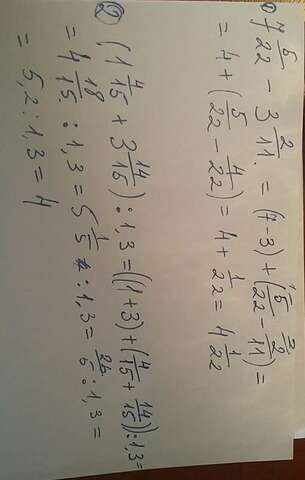 1) 7 5/22 - 3 2/11 = (7-3) + (5/22 - 2/11) =
= 4 + (5/22 - 4/22) = 4 + 1/22 = 4 1/22
2) (1 4/15 + 3 14/15) : 1,3 = ((1+3) + (4/15 + 14/15)) : 1,3 =
= 4 18/15 : 1,3 = 5 1/5 : 1,3 = 26/5 : 1,3 =
= 5,2 : 1,3 = 4